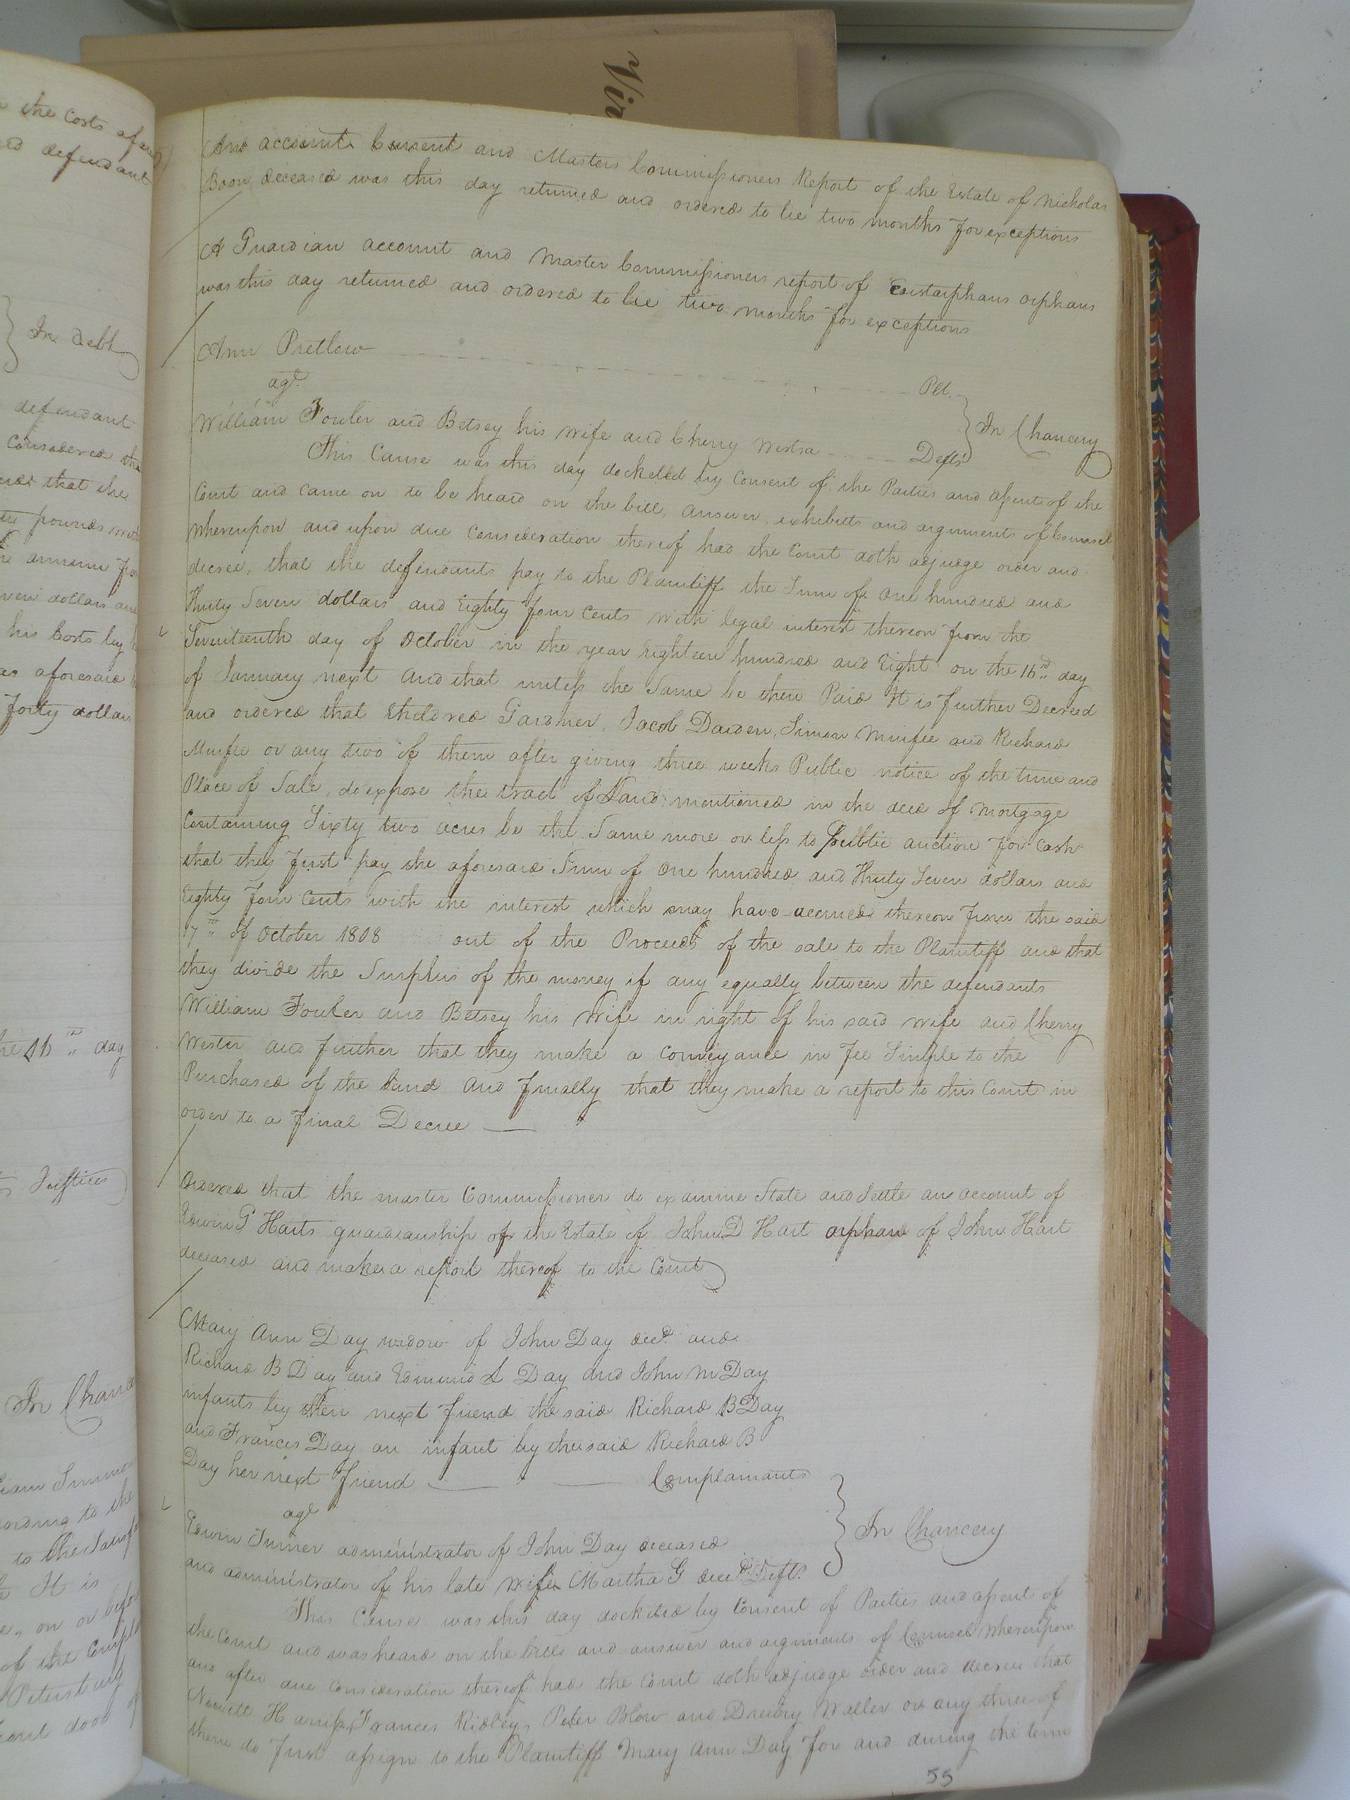 the costs afore
defendant
In debt
defendant
considered that
that the
pounds
annum from
dollars and
his Costs by
as aforesaid
Forty dollars
the 16th day
Justices
In Chance
ording to the
It is
on or before
of the Compl
Petersburg
door of
Vir
And account Current and Masters Commissioners Report of the Estate of Nicholas
Boon deceased was this day returned and ordered to lie two months for exceptions
A Guardian account and Master Commissioners report of orphans
was this day returned and ordered to lie two months for exceptions
Ann Pretlow Plt.
agt
William Fowler and Betsey his wife and Cherry Westra Defts
In Chancery
This Cause was this day docketed by Consent of the Parties and assent of the
Court and came on to be heard on the bill, answer, exhibits and arguments of Counsel
Whereupon and upon due Consideration thereof had the Court doth adjudge order and
decree, that the defendants pay to the Plaintiff the Sum of One hundred and
thirty Seven dollars and Eighty four Cents with legal interest thereon from the
Seventeenth day of October in the year Eighteen hundred and Eight on the 16th day
of January next And that unless the Same be then Paid It is further Decreed
and ordered that Etheldred Gardner, Jacob Darden, Simon Murfee and Richard
Murfee or any two of them after giving three weeks Public notice of the time and
Place of Sale, do expose the tract of Land mentioned in the deed of Mortgage
Containing Sixty two acres be the Same more or less to Public auction for Cash
that they first pay the aforesaid Sum of One hundred and Thirty Seven dollars and
Eighty four Cents with the interest which may have accrued thereon from the said
17th of October 1808 out of the Proceeds of the sale to the Plaintiff and that
they divide the Surplus of the money if any equally between the defendants
William Fowler and Betsey his Wife in right of his said wife and Cherry
Wester and further that they make a conveyance in Fee Simple to the
Purchased of the land And finally that they make a report to this Court in
order to a Final Decree
Ordered that the master Commissioner do examine State and Settle an account of
Edwin G Harts guardianship of the Estate of John D Hart orphan of John Hart
deceased and make a report thereof to the Court
Mary Ann Day widow of John Day decd and
Richard B Day and Edmund S Day and John M Day
infants by their next friend the said Richard B Day
and Frances Day an infant by the said Richard B
Day her next friend Complainants
agt
Edwin Turner administrator of John Day deceased
and administrator of his late wife Martha G decd Deft.
In Chancery
This Cause was this day docketed by Consent of Parties and assent of
the Court and was heard on the bill and answer and arguments of Counsel Whereupon
and after due consideration thereof had the Court doth adjudge order and decree that
Newitt Harris, Frances Ridley, Peter Blow and Drewry Waller or any three of
them do first assign to the Plaintiff Mary Ann Day for and during the term
55